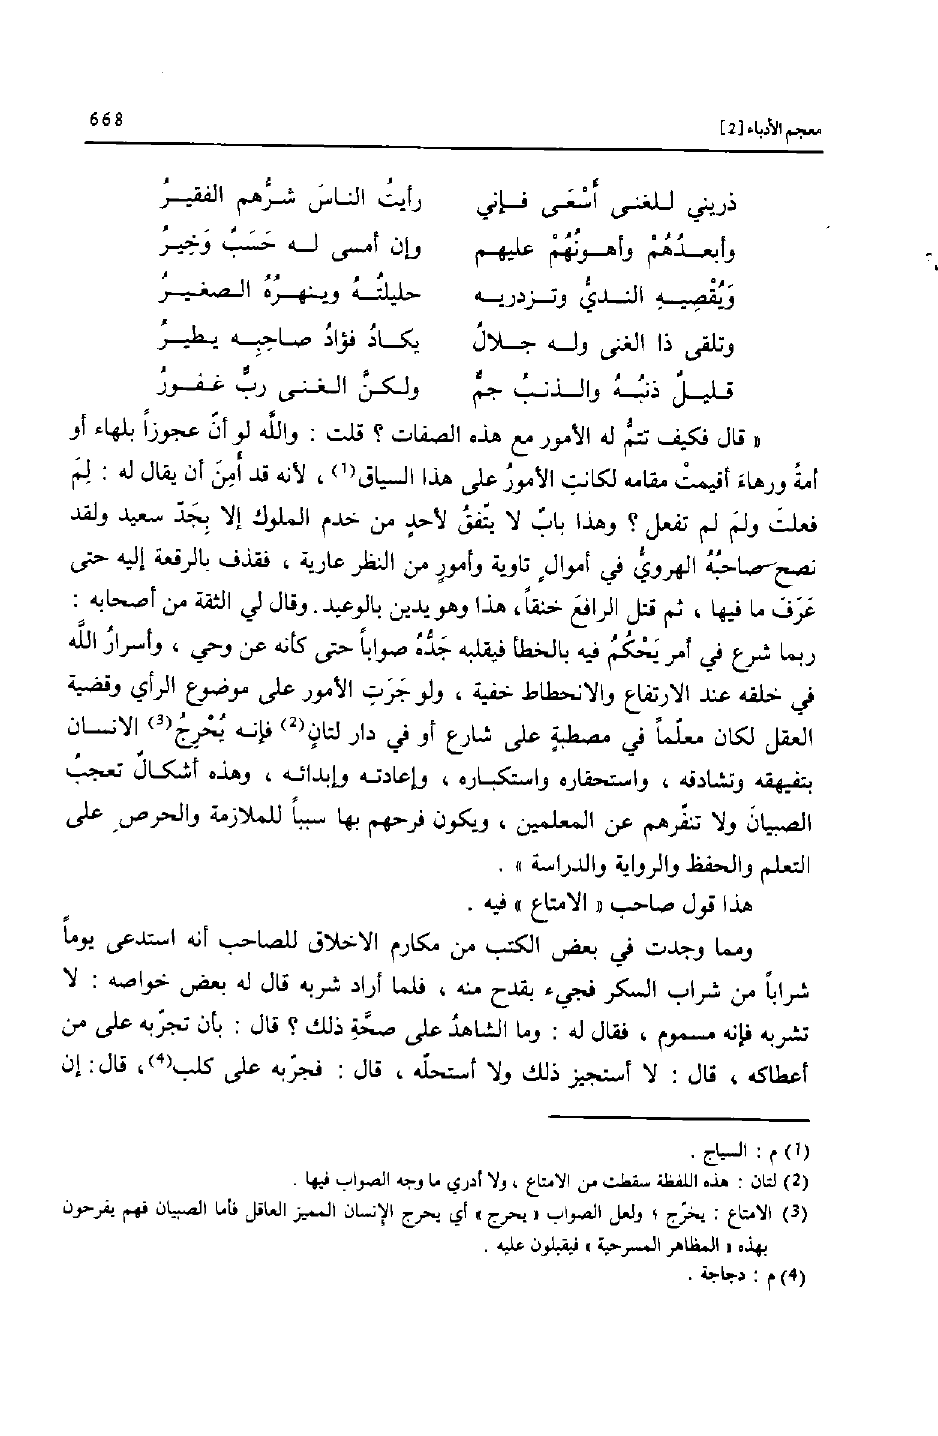 معجم الأدباء [2] 668
ذريني للغنى أَسْعَى فإني رأيتُ الناسَ شرُّهم الفقيرُ
وأبعدُهُمْ وأهونُهُمْ عليهم وإن أمسى له حَسَبٌ وَخِيرُ
وَيُقْصِيهِ النديُّ وتزدريه حليلتُهُ وينهرُهُ الصغيرُ
وتلقى ذا الغنى وله جلالٌ يكادُ فؤادُ صاحبِه يطيرُ
قليلٌ ذنبُهُ والذنبُ جمٌّ ولكنَّ الغنى ربٌّ غفورُ
« قال فكيف تتمُّ له الأمور مع هذه الصفات ؟ قلت : واللَّه لو أنّ عجوزاً بلهاء أو
أمةً ورهاءَ أقيمتْ مقامه لكانتِ الأمورُ على هذا السياق(1) ، لأنه قد أَمِنَ أن يقال له : لِمَ
فعلتَ ولِمَ لم تفعل ؟ وهذا بابٌ لا يتّفقُ لأحدٍ من خدم الملوك إلا بِجَدّ سعيد ولقد
نصح صاحبُهُ الهرويُّ في أموالٍ تاوية وأمورٍ من النظر عارية ، فقذف بالرقعة إليه حتى
عَرَفَ ما فيها ، ثم قتل الرافعَ خنقاً، هذا وهو يدين بالوعيد. وقال لي الثقة من أصحابه :
ربما شرع في أمر يَحْكُمُ فيه بالخطأ فيقلبه جَدُّهُ صواباً حتى كأنه عن وحي ، وأسرارُ اللَّه
في خلقه عند الارتفاع والانحطاط خفية ، ولو جَرَتِ الأمور على موضوع الرأي وقضية
العقل لكان معلّماً في مصطبةٍ على شارع أو في دار لتانٍ(2) فإنه يُخْرِجُ(3) الانسان
بتفيهقه وتشادقه ، واستحقاره واستكباره ، وإعادته وإبدائه ، وهذه أشكالٌ تعجبُ
الصبيانَ ولا تنفّرهم عن المعلمين ، ويكون فرحهم بها سبباً للملازمة والحرص على
التعلم والحفظ والرواية والدراسة » .
هذا قول صاحب « الامتاع » فيه .
ومما وجدت في بعض الكتب من مكارم الاخلاق للصاحب أنه استدعى يوماً
شراباً من شراب السكر فجيء بقدح منه ، فلما أراد شربه قال له بعض خواصه : لا
تشربه فإنه مسموم ، فقال له : وما الشاهدُ على صحَّةِ ذلك ؟ قال : بأن تجرّبه على من
أعطاكه ، قال : لا أستجيز ذلك ولا أستحلّه ، قال : فجرّبه على كلب(4)، قال : إن
(1) م : السياج .
(2) لتان : هذه اللفظة سقطت من الامتاع ، ولا أدري ما وجه الصواب فيها .
(3) الامتاع : يخرّج ؛ ولعل الصواب « يحرج » أي يحرج الإنسان المميز العاقل فأما الصبيان فهم يفرحون
بهذه « المظاهر المسرحية » فيقبلون عليه .
(4) م : دجاجة .